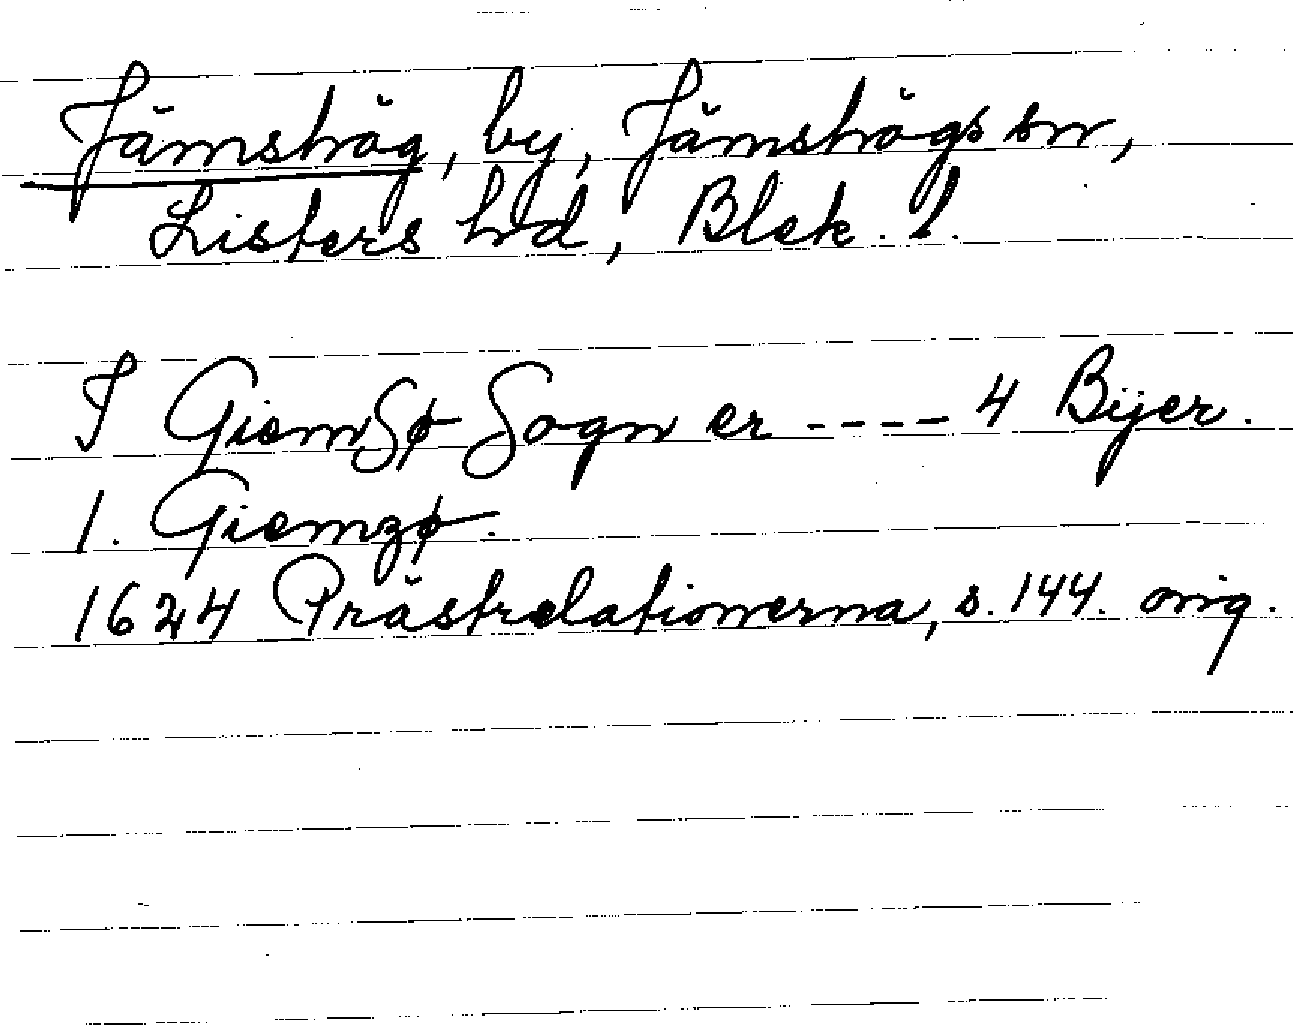 Jämshög, by, Jämshögs sn,
Listers hd, Blek. l.
I GiemSø Sogn er ---- 4 Bÿer.
1. Giemzø.
1624 Prästrelationerna, s. 144. orig.